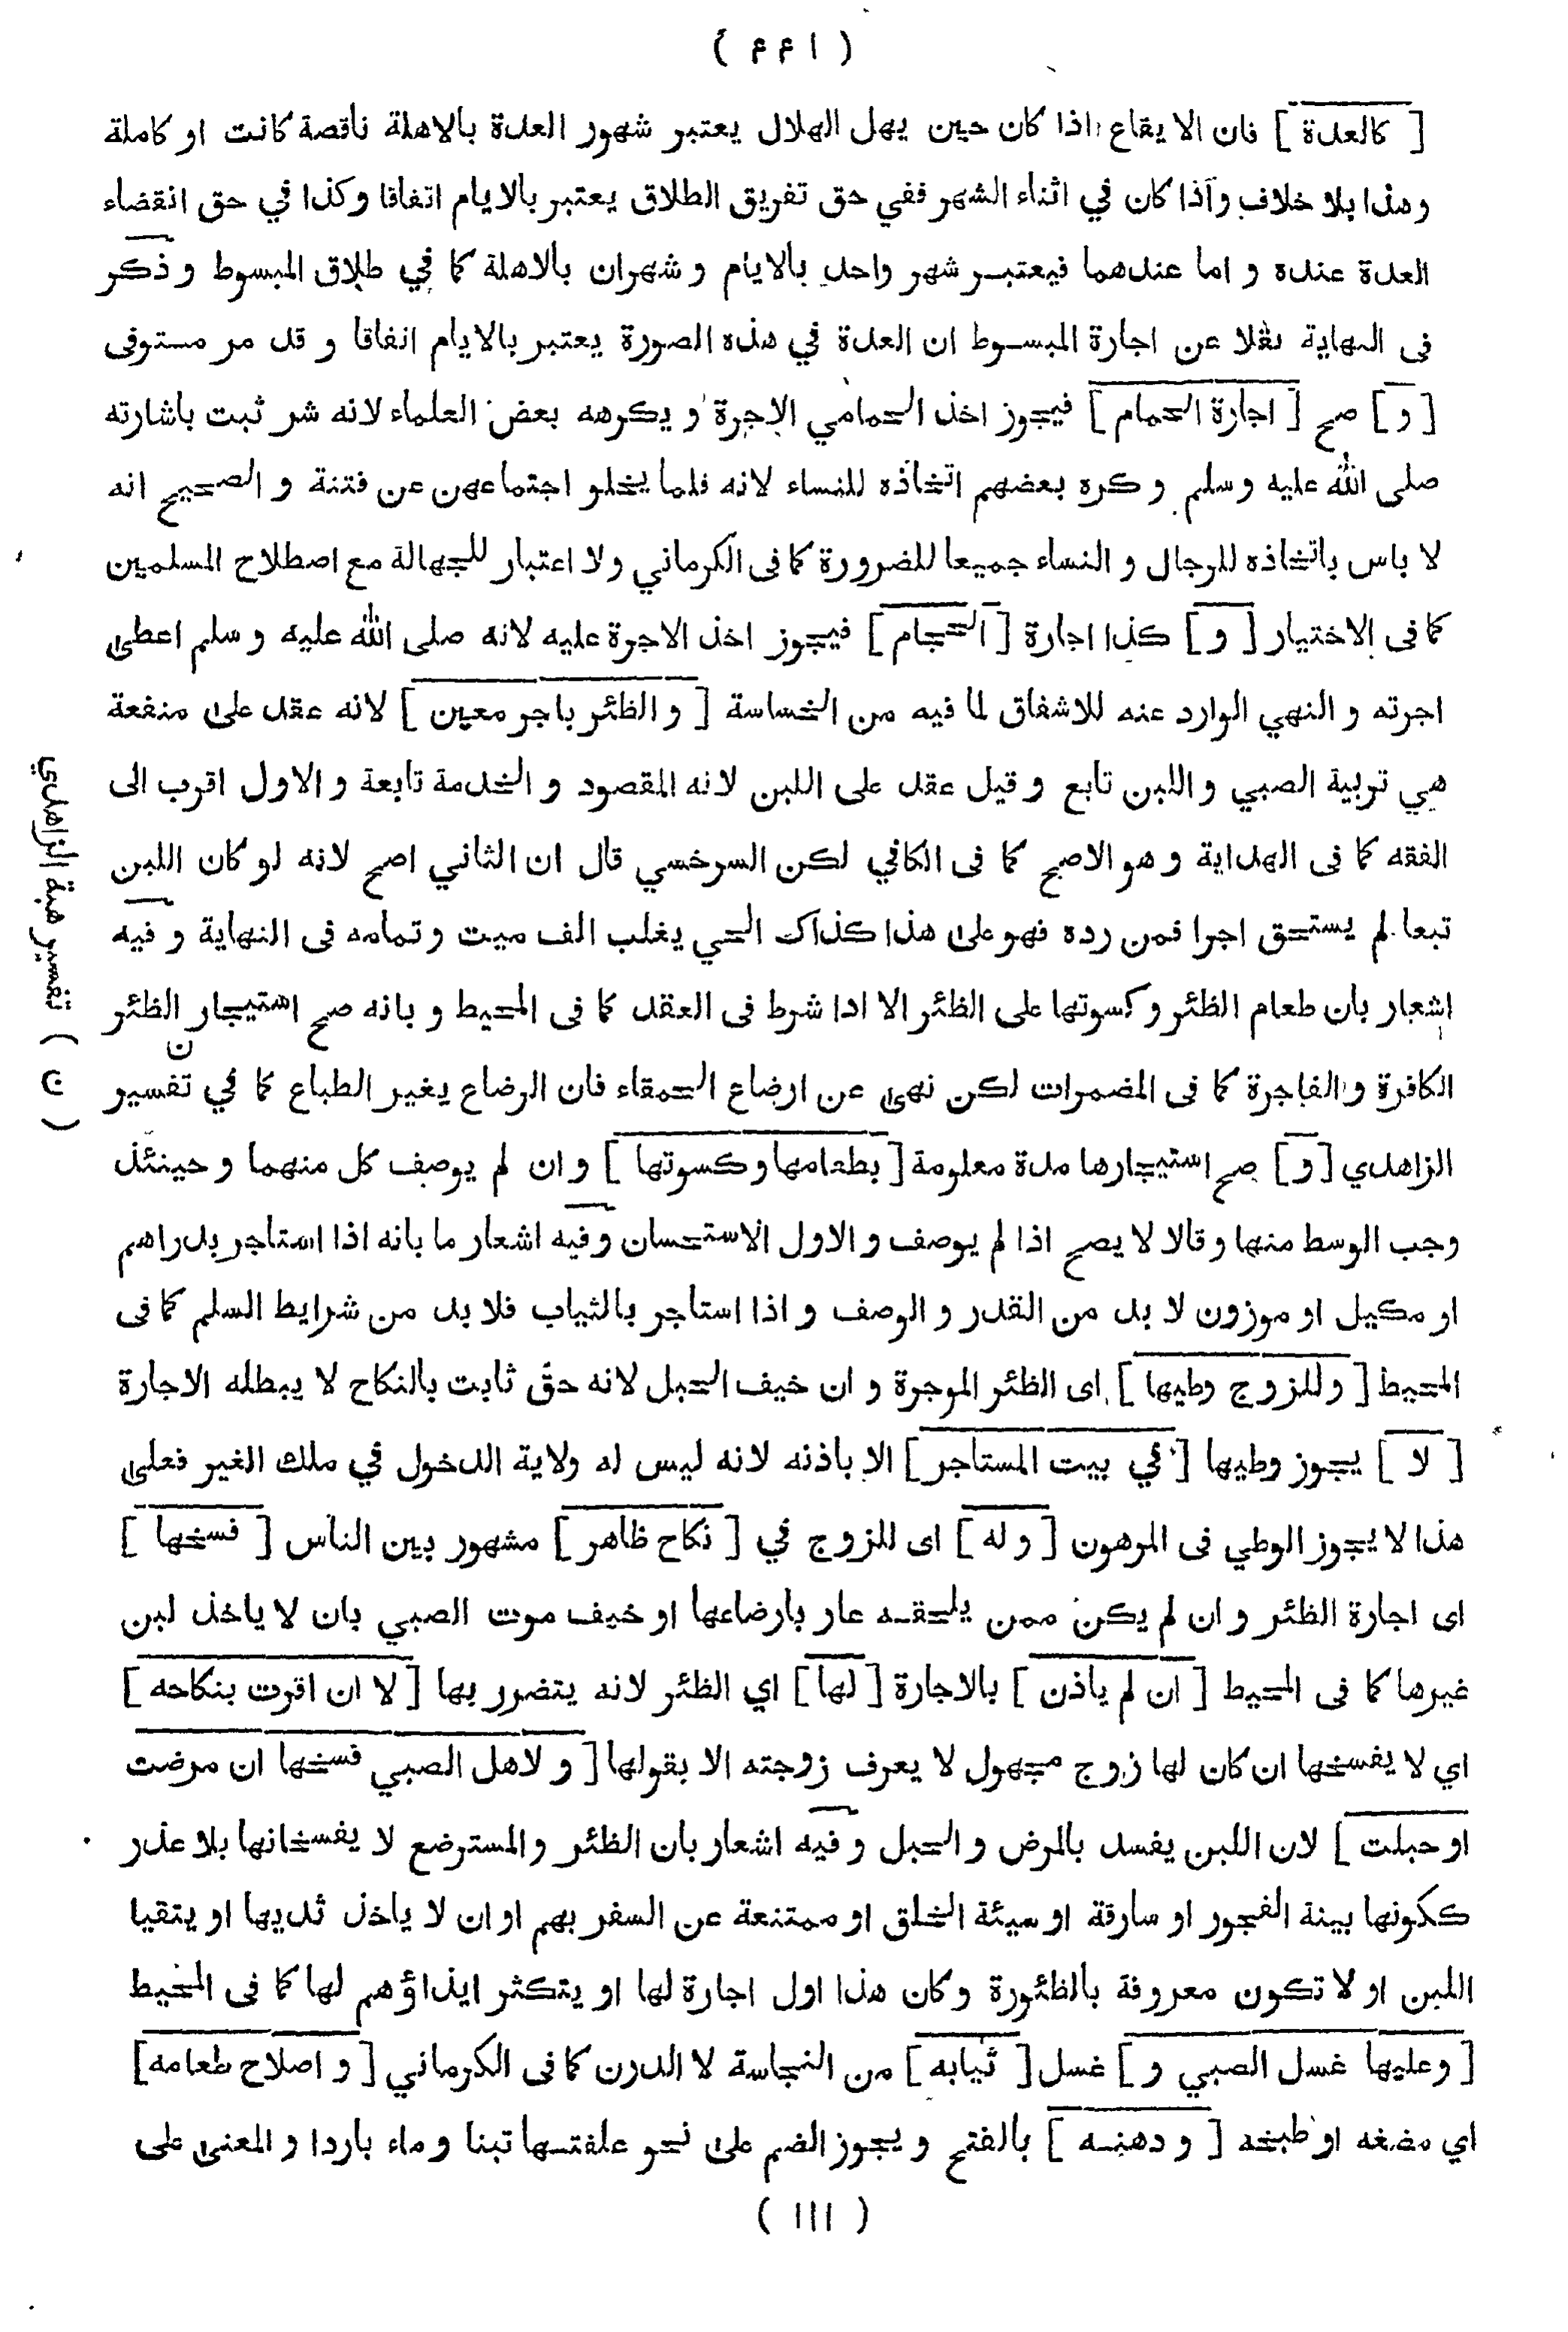 ( ۴۴۱ )
[ كالعدة ] فان الايقاع اذا كان حين يهل الهلال يعتبر شهور العدة بالاهلة ناقصة كانت او كاملة
وهذا بلا خلاف واذا كان في اثناء الشهر ففي حق تفريق الطلاق يعتبر بالايام اتفاقا وكذا في حق انقضاء
العدة عنده و اما عندهما فيعتبر شهر واحد بالايام و شهران بالاهلة كما في طلاق المبسوط و ذكر
فى النهاية نقلا عن اجارة المبسوط ان العدة في هذه الصورة يعتبر بالايام اتفاقا و قد مر مستوفى
[ و ] صح [ اجارة الحمام ] فيجوز اخذ الحمامي الاجرة و يكرهه بعض العلماء لانه شر ثبت باشارته
صلى الله عليه وسلم و كره بعضهم اتخاذه للنساء لانه قلما يخلو اجتماعهن عن فتنة و الصحيح انه
لا باس باتخاذه للرجال و النساء جميعا للضرورة كما فى الكرماني ولا اعتبار للجهالة مع اصطلاح المسلمين
كما فى الاختيار [ و ] كذا اجارة [ الحجام ] فيجوز اخذ الاجرة عليه لانه صلى الله عليه و سلم اعطى
اجرته و النهي الوارد عنه للاشفاق لما فيه من الخساسة [ و الظئر باجر معين ] لانه عقد على منفعة
هي تربية الصبي و اللبن تابع و قيل عقد على اللبن لانه المقصود و الخدمة تابعة و الاول اقرب الى
الفقه كما فى الهداية و هو الاصح كما فى الكافي لكن السرخسي قال ان الثاني اصح لانه لو كان اللبن
تبعا لم يستحق اجرا فمن رده فهو على هذا كذاك الحي يغلب الف ميت و تمامه فى النهاية و فيه
اشعار بان طعام الظئر و كسوتها على الظئر الا اذا شرط فى العقد كما فى المحيط و بانه صح استيجار الظئر
الكافرة و الفاجرة كما فى المضمرات لكن نهى عن ارضاع الحمقاء فان الرضاع يغير الطباع كما في تفسير
الزاهدي [ و ] صح استيجارها مدة معلومة [ بطعامها و كسوتها ] و ان لم يوصف كل منهما و حينئذ
وجب الوسط منها و قالا لا يصح اذا لم يوصف و الاول الاستحسان و فيه اشعار ما بانه اذا استاجر بدراهم
او مكيل او موزون لا بد من القدر و الوصف و اذا استاجر بالثياب فلا بد من شرايط السلم كما فى
المحيط [ و للزوج وطيها ] اى الظئر الموجرة و ان خيف الحبل لانه حق ثابت بالنكاح لا يبطله الاجارة
[ لا ] يجوز وطيها [ في بيت المستاجر ] الا باذنه لانه ليس له ولاية الدخول في ملك الغير فعلى
هذا لا يجوز الوطي فى المرهون [ و له ] اى للزوج في [ نكاح ظاهر ] مشهور بين الناس [ فسخها ]
اى اجارة الظئر و ان لم يكن ممن يلحقه عار بارضاعها او خيف موت الصبي بان لا ياخذ لبن
غيرها كما فى المحيط [ ان لم ياذن ] بالاجارة [ لها ] اي الظئر لانه يتضرر بها [ لا ان اقرت بنكاحه ]
اي لا يفسخها ان كان لها زوج مجهول لا يعرف زوجته الا بقولها [ و لاهل الصبي فسخها ان مرضت
او حبلت ] لان اللبن يفسد بالمرض و الحبل و فيه اشعار بان الظئر و المسترضع لا يفسخانها بلا عذر
ككونها بينة الفجور او سارقة او سيئة الخلق او ممتنعة عن السفر بهم او ان لا ياخذ ثديها او يتقيا
اللبن او لا تكون معروفة بالظئورة و كان هذا اول اجارة لها او يتكثر ايذاؤهم لها كما فى المحيط
[ و عليها غسل الصبي و ] غسل [ ثيابه ] من النجاسة لا الدرن كما فى الكرماني [ و اصلاح طعامه ]
اي مضغه او طبخه [ و دهنه ] بالفتح و يجوز الضم على نحو علفتها تبنا و ماء باردا و المعنى على
( ١١١ )
( ن ) تفسير هبة الزاهدي